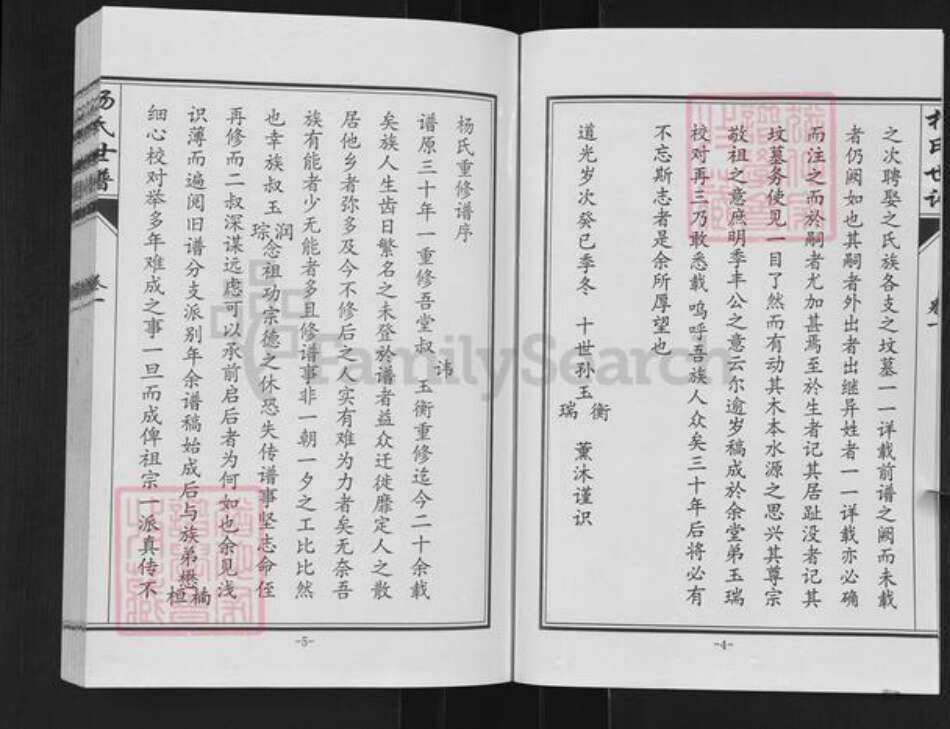 之次聘娶之氏族各支之坟墓一一详载前谱之阙而未载
者仍阙如也其嗣者外出者出继异姓者一一详载亦必确
而注之而於嗣者尤加甚焉至於生者记其居趾没者记其
坟墓务使见一目了然而有动其木本水源之思兴其尊宗
敬祖之意庶明季丰公之意云尔逾岁稿成於余堂弟玉瑞
校对再三乃敢悉载呜呼吾族人众矣三十年后将必有
不忘斯志者是余所厚望也
道光岁次癸巳季冬 十世孙玉衡瑞 薰沐谨识
-4-
杨氏重修谱序
谱原三十年一重修吾堂叔讳玉衡重修迄今二十余载
矣族人生齿日繁名之未登於谱者益众迁徙靡定人之散
居他乡者弥多及今不修后之人实有难为力者矣无奈吾
族有能者少无能者多且修谱事非一朝一夕之工比比然
也幸族叔玉润琮念祖功宗德之休恐失传谱事坚志命侄
再修而二叔深谋远虑可以承前启后者为何如也余见浅
识薄而遍阅旧谱分支派别年余谱稿始成后与族弟懋楠桓
细心校对举多年难成之事一旦而成俾祖宗一派真传不
杨氏世谱
卷一
-5-
FamilySearch